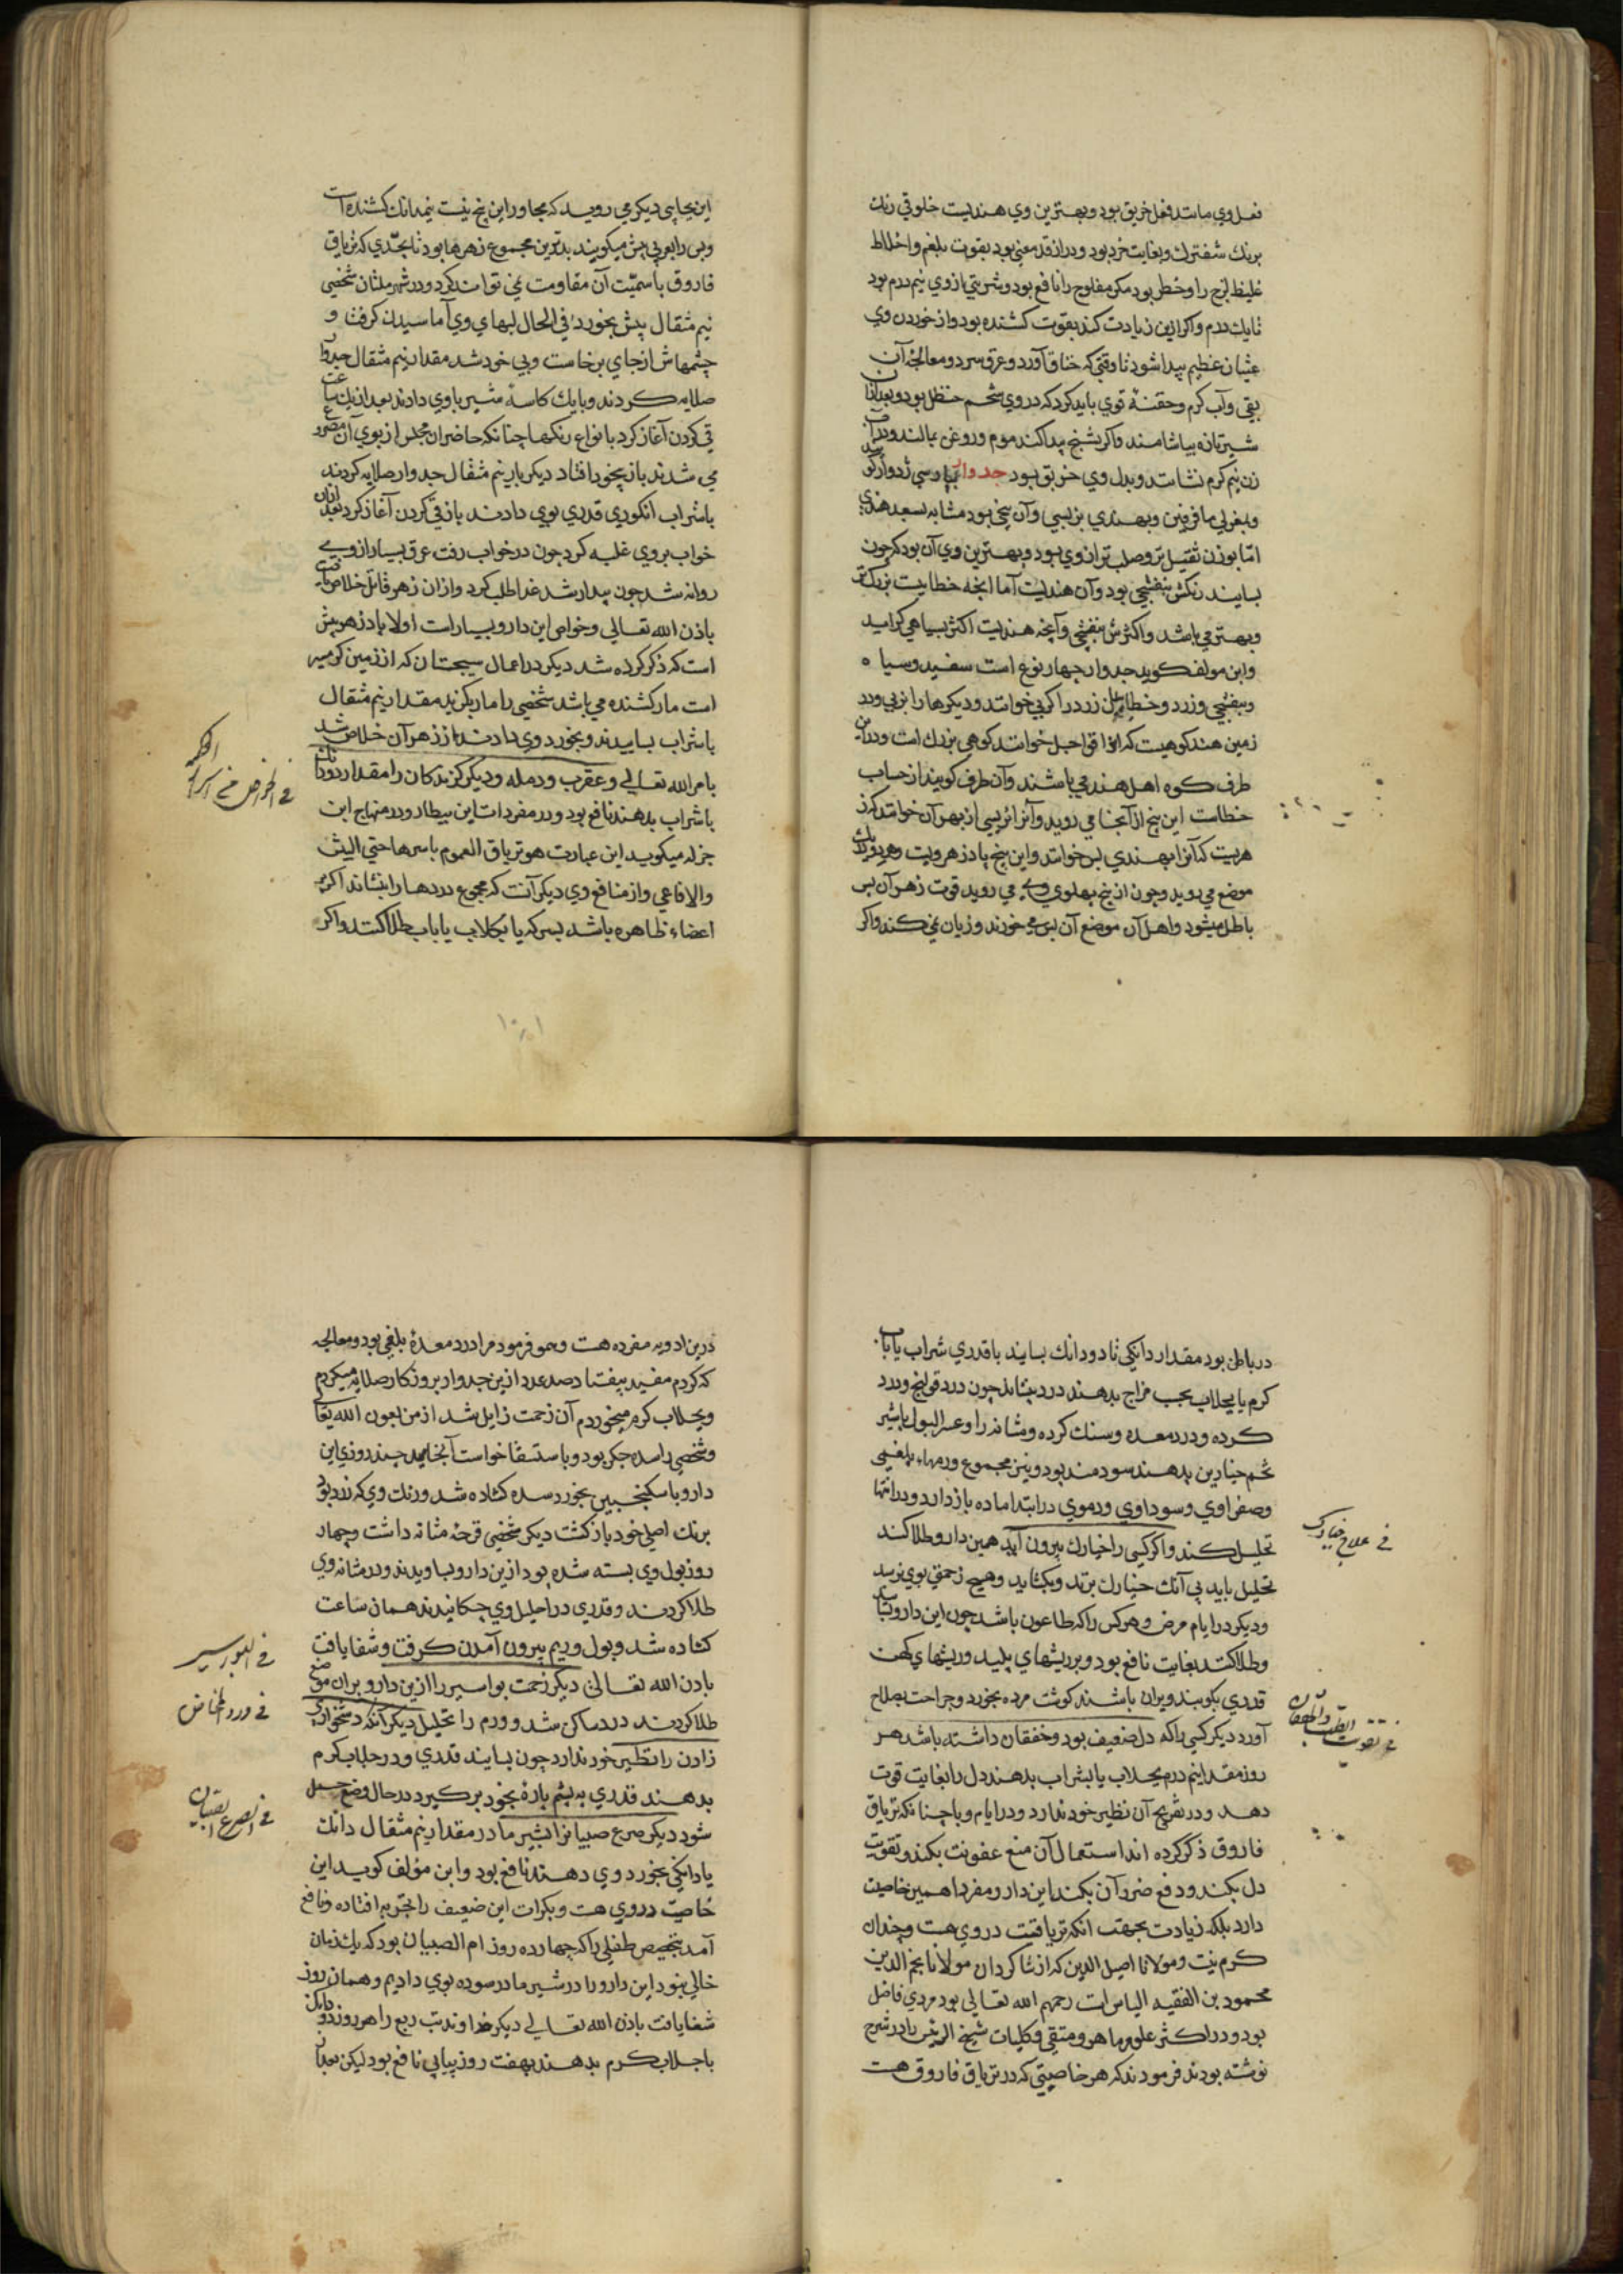 فعل وی مانند فعل خربق بود و بهترین وی هندیست خلوقی رنک
برنک شفترک و بغایت خرد بود و دراز قد معنی بود بقوت بلغم و اخلاط
غلیظ لزج را و خطر بود مکر مفلوج را نافع بود و شربتی از وی نیم درم بود
تا یک درم و اکر ازین زیادت کند بقوت کشنده بود و از خوردن وی
غثیان عظیم پیدا شود تا وقتی که خناق آورد و عرق سرد و معالجهٔ آن
بقی و آب کرم و حقنهٔ قوی باید کرد که در وی شحم حنظل بود و بعد از آن
شیر تازه بیاشامند و اکر تشنج پیدا کند موم و روغن بمالند و در آب
زن نیم کرم نشانند و بدل وی خربق بود جدوار پارسی ژدوار کویند
و بغربی مافرفین و بهندی نربسی و آن بیخی بود مشابه بسعد هندی
اما بوزن ثقیل‌تر و صلب‌تر از وی بود و بهترین وی آن بود که چون
بسایند رنکش بنفشجی بود و آن هندیست اما انچه خطاییست بزرک‌تر
و بهتر می باشد و اکثرش بنفشجی و آنچه هندیست اکثر بسیاهی کراید
و ابن مولف کوید جدوار چهار نوع است سفید و سیاه
و بنفشجی و زرد و خطاییان زرد را کربی خوانند و دیکرها را نربی و در
زمین هند کوهیست که انرا قراجل خوانند کوهی بزرک است و در این
طرف کوه اهل هند می باشند و آن طرف کویند از حساب
خطاست این بیخ از آنجا می روید و آنرا نربسی از بهر آن خوانند که ز
هریست که آنرا بهندی بس خوانند و این بیخ پادزهر ویست و هر دو در یک
موضع می روید و چون از بیخ بپهلوی وی می روید قوت زهر آن بس
باطل میشود و اهل آن موضع آن بس می خورند و زیان نمی کند و اکر
این بجایی دیکر می روید که مجاور این بیخ نیست نیم دانک کشنده است
و بس را بعربی بیش میکویند بدترین مجموع زهرها بود تا بحدی که تریاق
فاروق با سمیت آن مقاومت نمی تواند کرد و در شهر ملتان شخصی
نیم مثقال بیش بخورد فی الحال لبهای وی آماسیدن کرفت و
چشمهاش از جای برخاست و بی خود شد مقدار نیم مثقال جدوار
صلایه کردند و با یک کاسهٔ شیر باوی دادند بعد از یک ساعت
قی کردن آغاز کرد با نواع رنکها چنانکه حاضران مجلس از بوی آن متضرر
می شدند باز بیخود افتاد دیکر بار نیم مثقال جدوار صلایه کردند
با شراب انکوری قدری بوی دادند باز قی کردن آغاز کرد بعد از آن
خواب بر وی غلبه کرد چون در خواب رفت عرق بسیار از وی
روانه شد چون بیدار شد غذا طلب کرد و از ان زهر قاتل خلاص یافت
باذن الله تعالی و خواص این دارو بسیارست اولا پادزهر بیش
است که ذکر کرده شد دیکر در اعمال سیجستان که از زمین کرمسیر
است مار کشنده می باشد شخصی را مار بکزید مقدار نیم مثقال
با شراب بساییدند و بخورد وی دادند از زهر آن خلاص شد
بامر الله تعالی و عقرب و رمله و دیکر کزندکان را مقدار دو دانک
با شراب بدهند نافع بود و در مفردات ابن بیطار و در منهاج ابن
جزله میکوید این عبارت هو تریاق العموم باسرها حتی البیش
و الافاعی و از منافع وی دیکر آنست که مجموع دردها را بنشاند اکر بر
اعضاء ظاهره باشد بسرکه یا بکلاب یا باب طلا کنند و اکر
در باطن بود مقدار دانکی تا دو دانک بسایند با قدری شراب یا باب
کرم یا بجلاب بحسب مزاج بدهند درد بنشاند چون درد قولنج و درد
کرده و درد معده و سنک کرده و مثانه را و عسر البول با شیر
تخم خیارین بدهند سودمند بود و نیز مجموع ورمهاء بلغمی
و صفراوی و سوداوی و دموی در ابتدا ماده باز دارد و در انتها
تحلیل کند و اکر کسی را خیارک بیرون آید همین دارو طلا کند
فی علاج خیارک
تحلیل یابد بی آنک خیارک بترند و بکشاید و هیچ زحمتی بوی نرسد
و دیکر در ایام مرض و هر کس را که طاعون باشد چون این دارو بساید
و طلا کنند بغایت نافع بود و بر ریشهای پلید و ریشهای کهن
قدری بکوبند و بران باشند کوشت مرده بخورد و جراحت بصلاح
آورد دیکر کسی را که دل ضعیف بود و خفقان داشته باشد هر
فی تقویت القلب و الخفقان
روز مقدار نیم درم بجلاب یا بشراب بدهند دل را بغایت قوت
دهد و در تفریح آن نظیر خود ندارد و در ایام وبا چنانکه تریاق
فاروق ذکر کرده اند استعمال آن منع عفونت بکند و تقویت
دل بکند و دفع ضرر آن بکند این دارو مفردا همین خاصیت
دارد بلکه زیادت بجهت آنکه تریاقیت در وی هست و چندان
کرم نیست و مولانا اصیل الدین که از شاکردان مولانا نجم الدین
محمود بن الفقیه الیاس است رحمهم الله تعالی بود مردی فاضل
بود و در اکثر علوم ماهر و متقی و کلیات شیخ الرئیس را در شرح
نوشته بودند فرمودند که هر خاصیتی که در تریاق فاروق هست
درین ادویه مفرده هست و هم و فرمود مرا درد معدهٔ بلغمی بود و معالجه
که کردم مفید نیفتاد صد عدد ازین جدوار بروزکار صلایه میکردم
و بجلاب کرم میخوردم آن زحمت زایل شد از من بعون الله تعالی
و شخصی را سده جکر بود و باستسقا خواست آنجامید چند روزی این
دارو با سکنجبین بخورد سده کشاده شد و رنک وی که زرد بود
برنک اصلی خود باز کشت دیکر شخصی قرحهٔ مثانه داشت و چهار
روز بول وی بسته شده بود ازین دارو بساویدند و در مثانه وی
طلا کردند و قدری در احلیل وی چکانیدند همان ساعت
کشاده شد و بول و ریم بیرون آمدن کرفت و شفا یافت
باذن الله تعالی دیکر زحمت بواسیر را ازین دارو بران موضع
فی البواسیر
طلا کردند درد ساکن شد و ورم را تحلیل دیکر آنکه دشخواری
زادن را نظیر خود ندارد چون بسایند قدری و در جلاب کرم
بدهند قدری به پشم پاره بخود برکیرد در حال وضع حمل
شود دیکر صرع صبیانرا بشیر مادر مقدار نیم مثقال دانک
فی الصرع الصبیان
یا دانکی بخورد وی دهند نافع بود و ابن مؤلف کوید این
خاصیت در وی هست و بکرات این ضعیف را بتجربه افتاده و نافع
آمد بتخصیص طفلی را که چهارده روز ام الصبیان بود که یک زمان
خالی نبود این دارو را در شیر مادر سوده بوی دادیم و همان روز
شفا یافت باذن الله تعالی دیکر خداوند تب ربع را هر روز دو دانک
با جلاب کرم بدهند بهفت روز پیاپی نافع بود لیکن بعد از